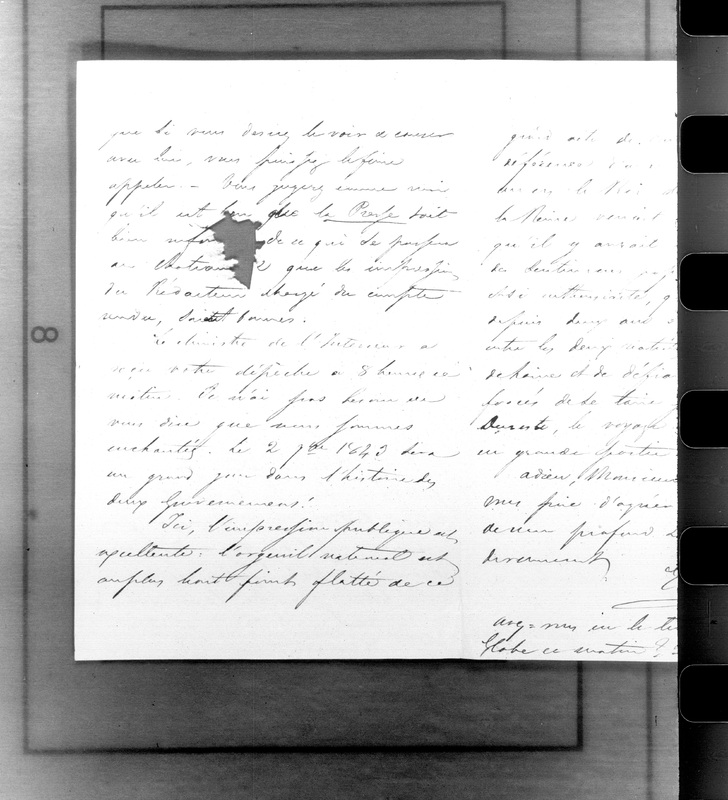 que si vous desirez le voir & causer
avec lui, vous puissiez le faire
appeler. - Vous jugerez comme moi
qu'il est bon que la Presse soit
bien infor de ce qui se passera
au chateau & que les impressions
du Rédacteur chargé du compte
rendu, soient bonnes.
Le ministre de l'Interieur a
reçu votre dépêche à 8 heures ce
matin. Je n'ai pas besoin de
vous dire que nous sommes
enchantés. Le 2 7bre 1843 sera
un grand jour dans l'histoire des
deux Gouvernemens!
Ici, l'impression publique est
excellente: l'orgeuil national est
au plus haut point flatté de ce
qu'un acte de
déférence
envers le Roi
la Reine venait
qu'il y aurait
des sentimens
si enthousiaste, q
depuis deux ans
entre les deux nati
de haine et de défia
forcés de se taire
Du reste, le voyage
en grande partie
adieu, Monsieur
vous prie d'agréer
de mon profond
dévouement
avez-vous eu le
Globe ce matin?
8